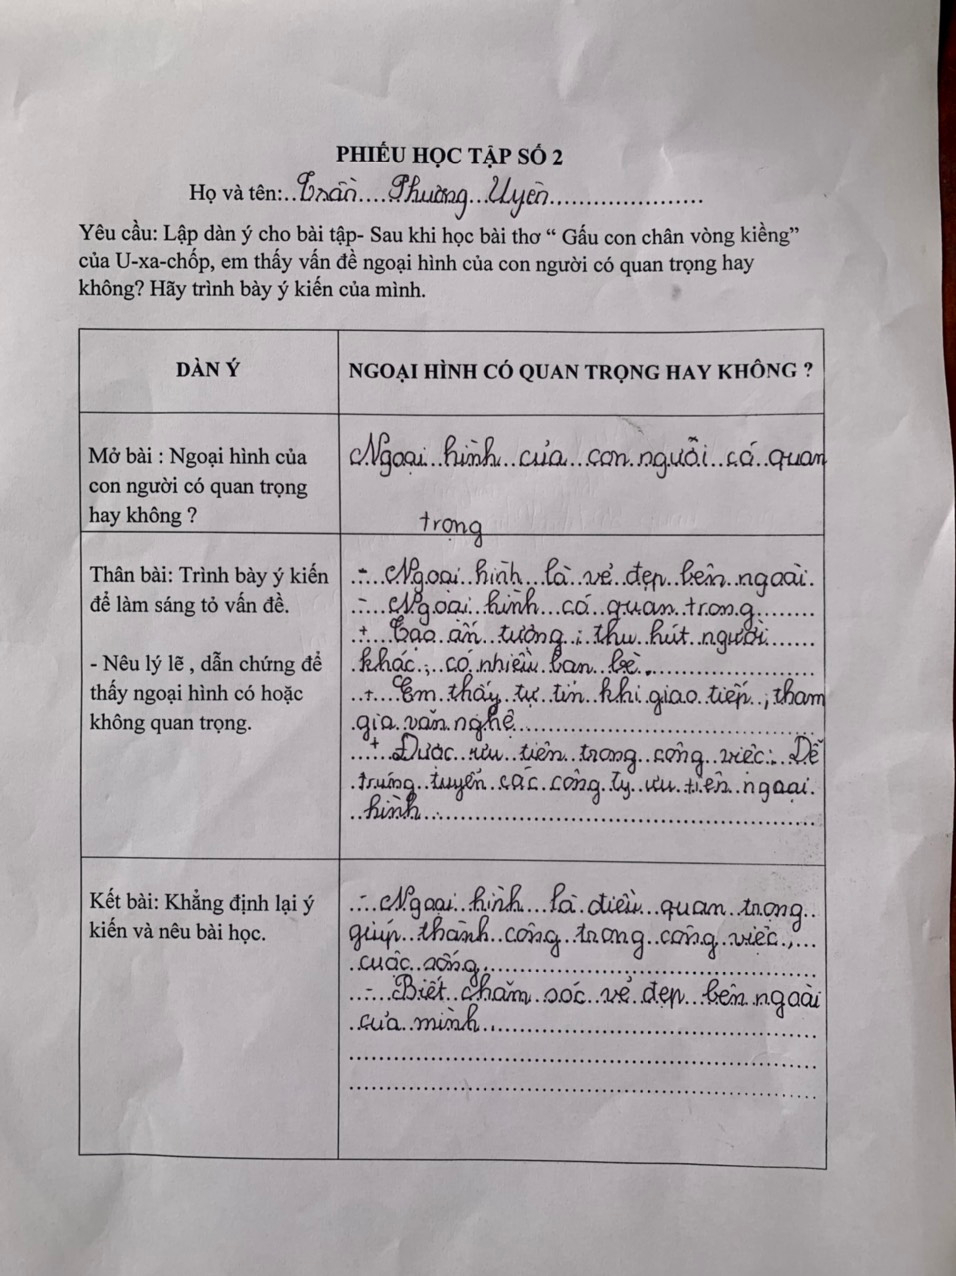 PHIẾU HỌC TẬP SỐ 2
Họ và tên:..Trần....Phương...Uyên......................
Yêu cầu: Lập dàn ý cho bài tập- Sau khi học bài thơ “ Gấu con chân vòng kiềng”
của U-xa-chốp, em thấy vấn đề ngoại hình của con người có quan trọng hay
không? Hãy trình bày ý kiến của mình.
DÀN Ý
NGOẠI HÌNH CÓ QUAN TRỌNG HAY KHÔNG ?
Mở bài : Ngoại hình của
con người có quan trọng
hay không ?
Ngoại hình của con người có quan
trọng
Thân bài: Trình bày ý kiến
để làm sáng tỏ vấn đề.
- Nêu lý lẽ , dẫn chứng để
thấy ngoại hình có hoặc
không quan trọng.
- Ngoại hình là vẻ đẹp bên ngoài.
- Ngoại hình có quan trọng
+ Tạo ấn tượng ; thu hút người
khác ; có nhiều bạn bè.
+ Em thấy tự tin khi giao tiếp ; tham
gia văn nghệ
+ Được ưu tiên trong công việc: Dễ
trúng tuyển các công ty ưu tiên ngoại
hình
Kết bài: Khẳng định lại ý
kiến và nêu bài học.
- Ngoại hình là điều quan trọng
giúp thành công trong công việc ,
cuộc sống
- Biết chăm sóc vẻ đẹp bên ngoài
của mình